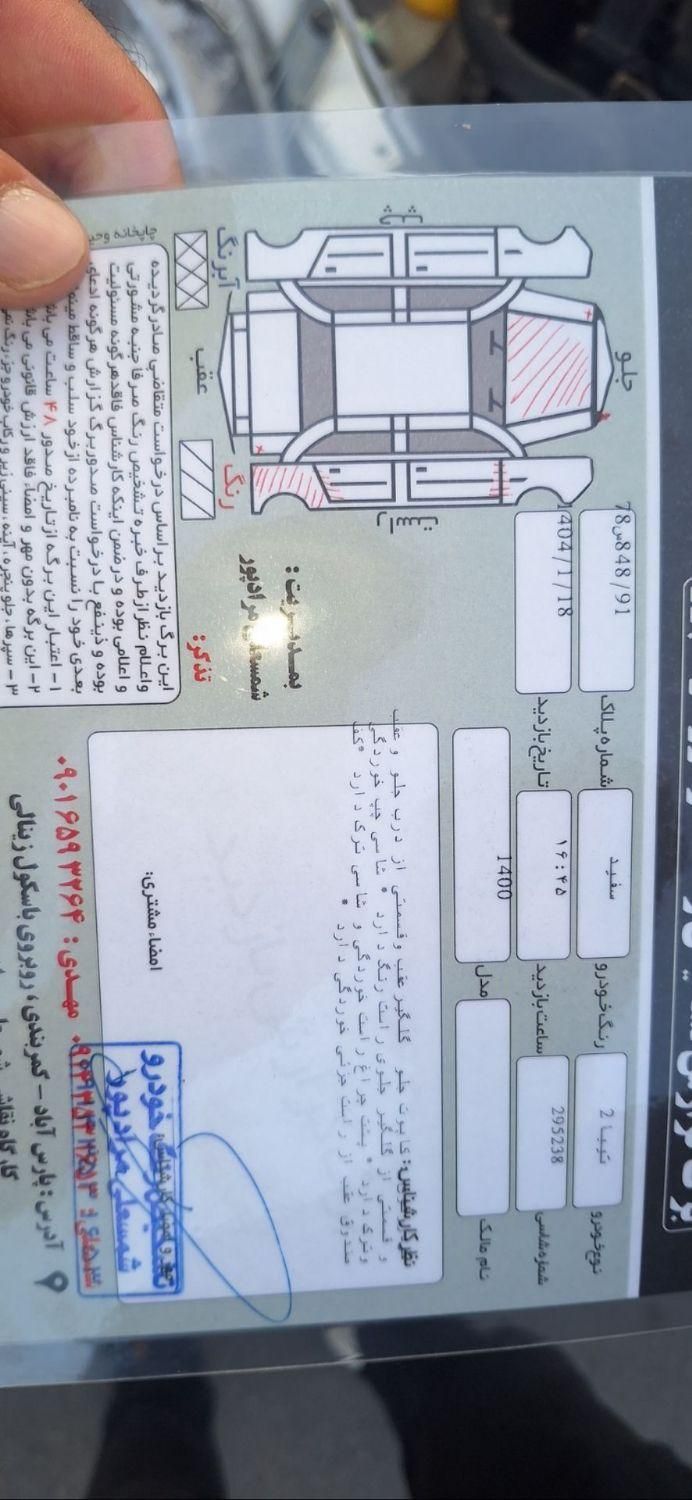 نوع خودرو
تیبا 2
رنگ خودرو
سفید
شماره پلاک
91/848س78
شماره شاسی
295238
ساعت بازدید
۱۶:۴۵
تاریخ بازدید
1404/1/18
نام مالک
مدل
1400
جلو
عقب
رنگ
آبرنگ
نظر کارشناس: کاپوت جلو گلگیر عقب و قسمتی از درب جلو و عقب
و قسمتی از گلگیر جلوی راست رنگ دارد * شاسی چپ خوردگی
و ترک دارد * پشت چراغ راست خوردگی و شاسی ترک دارد * کف
صندوق عقب از راست جزئی خوردگی دارد *
امضاء مشتری:
تشخیص رنگ خودرو
شمسعلی مرادپور
بمدیریت:
شمسعلی مرادپور
تذکر:
این برگ بازدید بر اساس درخواست متقاضی صادر گردیده
و اعلام نظر از طرف خبره تشخیص رنگ صرفا جنبه مشورتی
و اعلامی بوده و در ضمن اینکه کارشناس فاقد هرگونه مسئولیت
بوده و ذینفع با درخواست صدور برگ گزارش هرگونه ادعای
بعدی خود را نسبت به نامبرده از خود سلب و ساقط مینماید
۱- اعتبار این برگه از تاریخ صدور ۴۸ ساعت می باشد
۲- این برگه بدون مهر و امضاء فاقد ارزش قانونی می باشد
مهدی: ۰۹۰۱۶۵۹۳۲۶۴
آدرس: پارس آباد - کمربندی، روبروی باسکول زینالی
چاپخانه